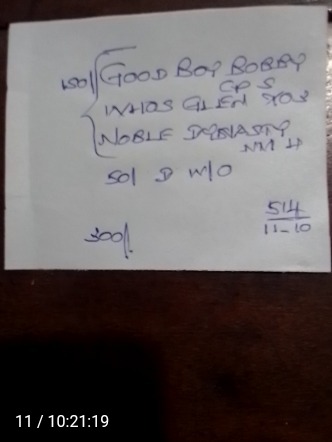 150/ GOOD BOY BOBBY
CP S
WHOS GLEN
NOBLE DYNASTY
NM H
50/ D W/O
514
11-10
300/.
11 / 10:21:19